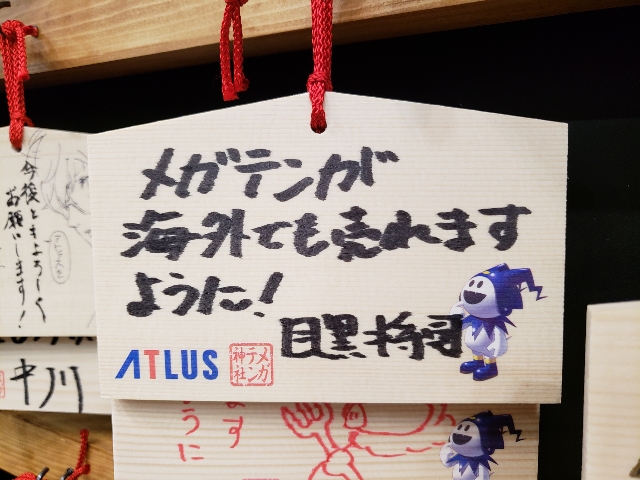 メガテンが
海外でも売れます
ように!
目黒将司
ATLUS
メガテン神社
今後ともよろしく
お願いします!
中川
ます
うに